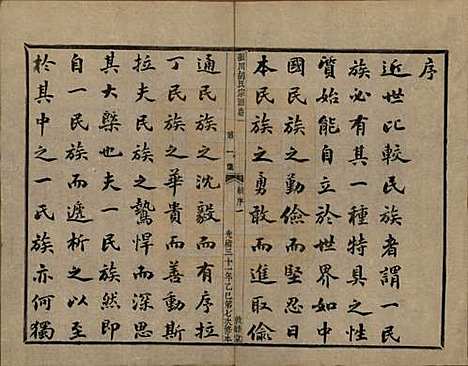 序
近世比較民族者謂一民
族必有其一種特具之性
質始能自立於世界如中
國民族之勤儉而堅忍日
本民族之勇敢而進取條
胡氏宗譜卷一
第一集
序一
光緒三十一年乙巳第七次修本
敦睦堂
通民族之沈毅而有序拉
丁民族之華貴而善動斯
拉夫民族之鷙悍而深思
其大槩也夫一民族然即
自一民族而遞析之以至
於其中之一氏族亦何獨